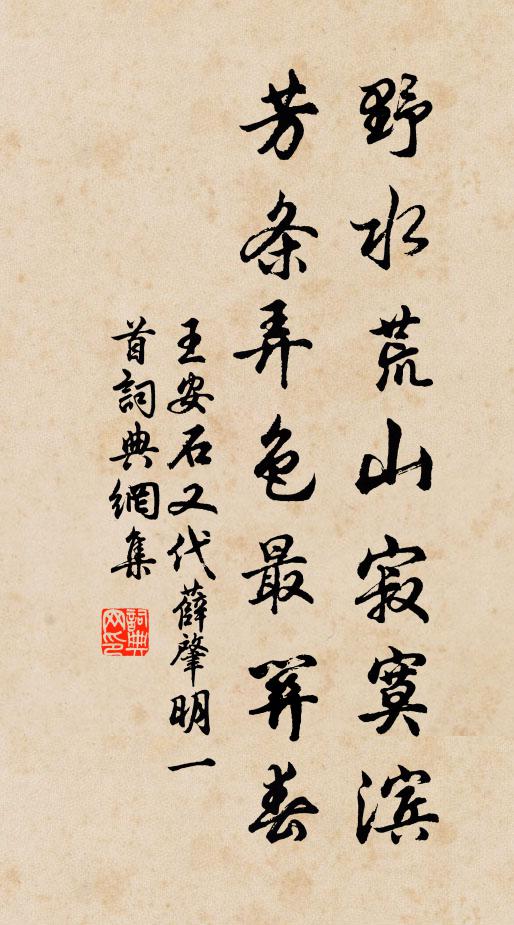 野水荒山寂寞滨
芳条弄色最关春
王安石又代薛肇明一
首詞典網集
詞典
网印